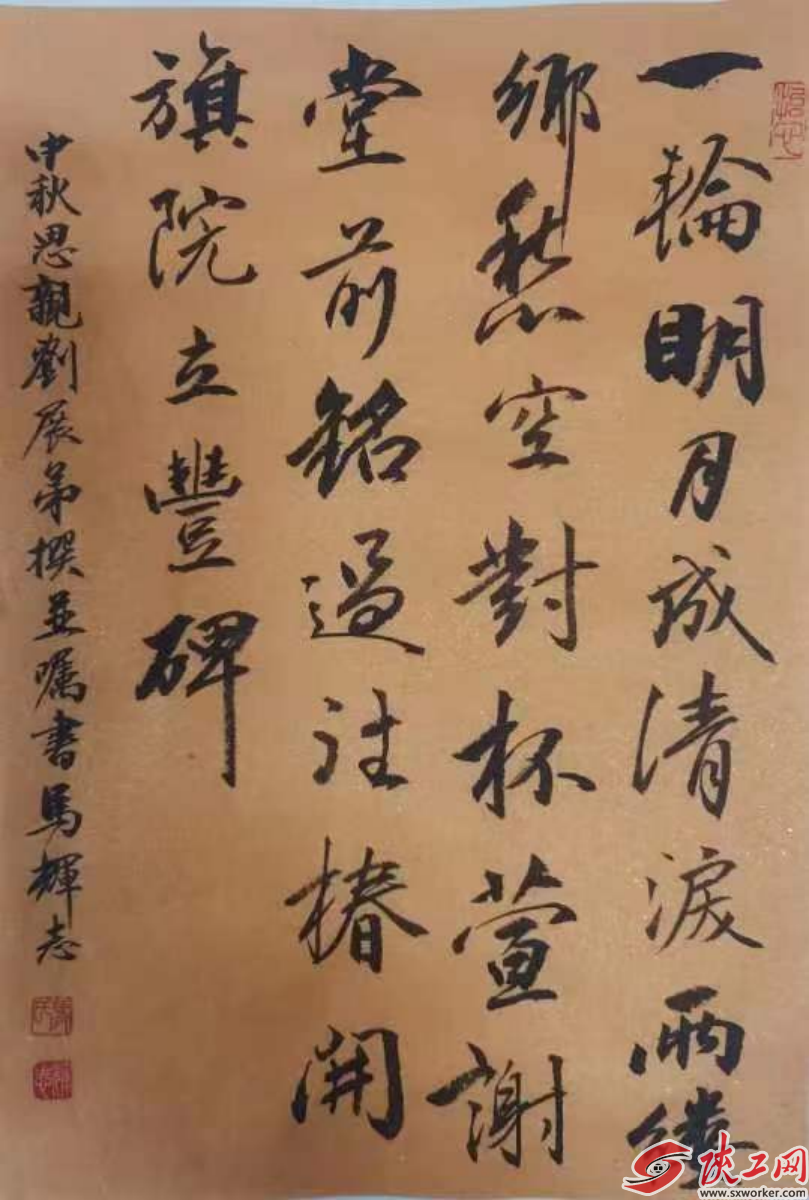 一輪明月成清淚兩縷
鄉愁空對杯萱謝
堂前銘過往椿開
旗院立豐碑
中秋思親劉展弟撰並囑書馬輝志
陕工网
www.sxworker.com